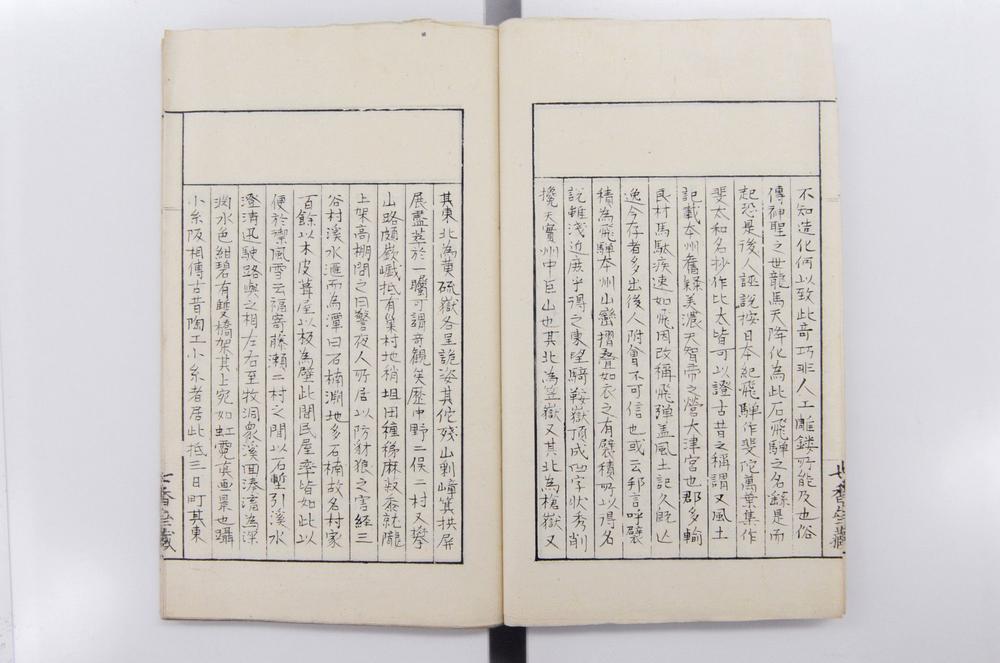 不知造化何以致此奇巧非人工雕鏤所能及也俗
傳神聖之世龍馬天降化為此石飛騨之名緣是而
起恐是後人誣說按日本紀飛騨作斐陀萬葉集作
斐太和名抄作比太皆可以證古昔之稱謂又風土
記載本州舊隸美濃天智帝之營大津宮也郡多輸
良村馬駄疾速如飛因改稱飛弾盖風土記久既亾
逸今存者多出後人附會不可信也或云邦言呼襞
積為飛騨本州山巒摺疊如衣之有襞積所以得名
說雖淺近庶乎得之東望騎鞍嶽頂成凹字狀秀削
攙天實州中巨山也其北為笠嶽又其北為槍嶽又
其東北為硫嶽各呈詭姿其佗殘山剰嶂箕拱屏
展盡萃於一矚可謂奇觀矣歷中野二俣二村又攀
山路頗嶔巇抵有巢村地稍坦田種稊麻菽黍就隴
上架高棚問之曰警夜人所居以防豺狼之害經三
谷村溪水滙而為潭曰石楠淵地多石楠故名村家
百餘以木皮葺屋以板為壁此間民屋率皆如此以
便於禦風雪云福寄藤瀬二村之間以石塹引溪水
澄清迅駛路與之相左右至牧洞衆溪囬湊潴為深
淵水色紺碧有雙橋架其上宛如虹霓真画景也躡
小糸阪相傳古昔陶工小糸者居此抵三日町其東